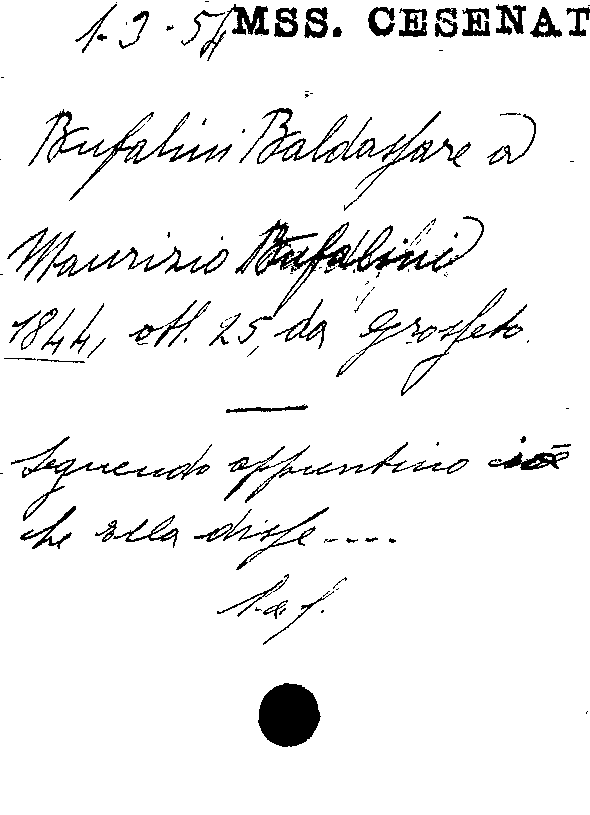 1-3-54 MSS. CESENAT
Bufalini Baldassare a
Maurizio Bufalini
1844, ott. 25, da Grosseto.
Seguendo appuntino ciò
che Ella disse....
l.a.f.